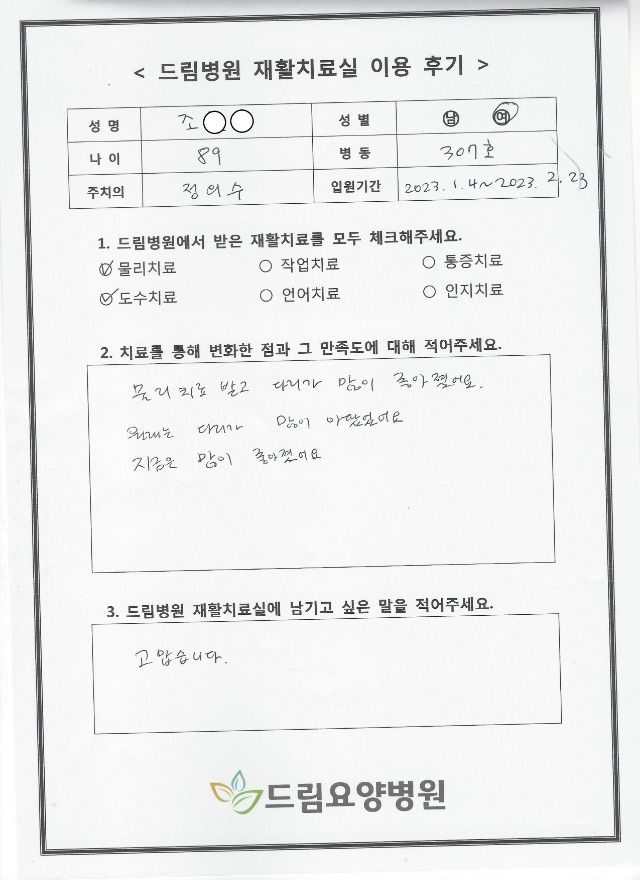 < 드림병원 재활치료실 이용 후기 >
성 명 조○○ 성 별 남 여
나 이 89 병 동 307호
주치의 정의수 입원기간 2023. 1. 4~2023. 2. 23
1. 드림병원에서 받은 재활치료를 모두 체크해주세요.
물리치료 작업치료 통증치료
도수치료 언어치료 인지치료
2. 치료를 통해 변화한 점과 그 만족도에 대해 적어주세요.
물리치료 받고 다리가 많이 좋아졌어요.
원래는 다리가 많이 아팠었어요
지금은 많이 좋아졌어요
3. 드림병원 재활치료실에 남기고 싶은 말을 적어주세요.
고맙습니다.
드림요양병원